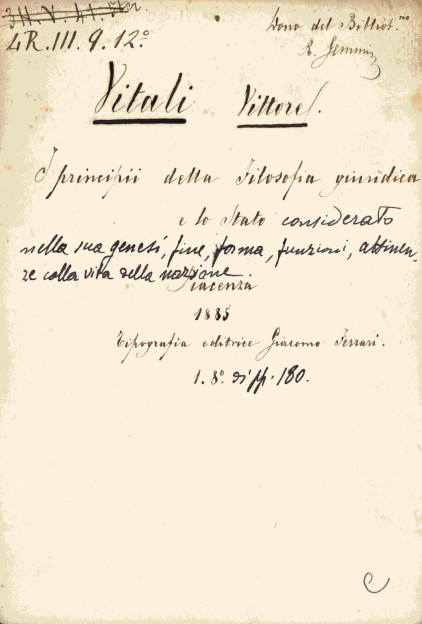 4R.III.9.12º
Dono del Bibliot.no
R. Gemmi
Vitali Vittore.
I principii della Filosofia giuridica
e lo Stato considerato
nella sua genesi, fine, forma, funzioni, attinen-
ze colla vita della nazione.
Piacenza
1885
Tipografia editrice Giacomo Ferrari.
1. 8º. di pp. 180.